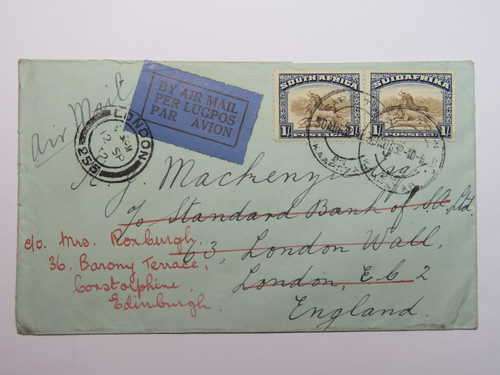 Air Mail
BY AIR MAIL
PER LUGPOS
PAR AVION
SOUTH AFRICA
SUIDAFRIKA
1/- 1/-
1/- 1/-
LONDON
SP
256
Mackenzie
c/o Standard Bank of S.A. Ltd
63, London Wall,
London, E C 2
England.
c/o. Mrs. Roxburgh.
36. Barony Terrace,
Corstorphine.
Edinburgh.